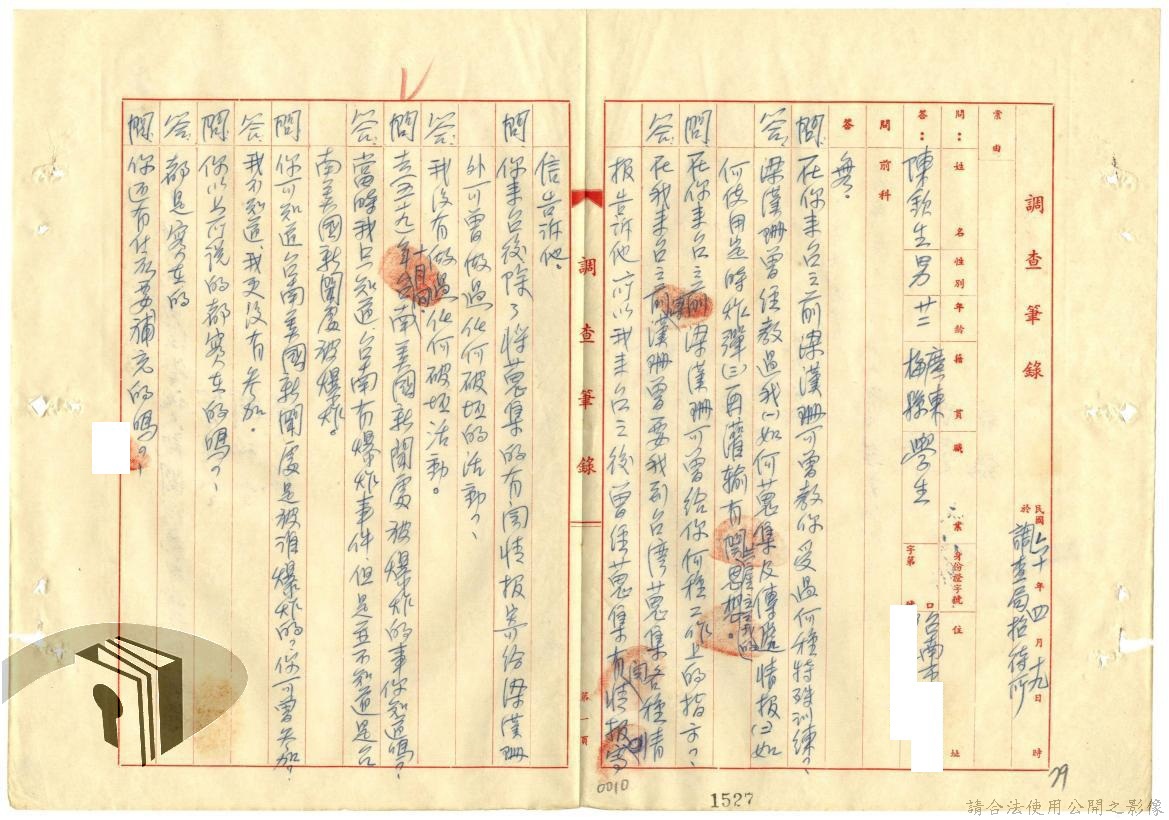 調查筆錄
民國六十年四月十九日 時
於調查局招待所
案由
問：姓名 性別 年齡 籍貫 職業 身份證字號 住址
答：陳欽生 男 廿二 廣東梅縣 學生 字第 號 台南市
問 前科
答 無。
問 在你來台之前梁漢珊可曾教你受過何種特殊訓練？
答 梁漢珊曾經教過我(1)如何蒐集及傳遞情報(2)如
何使用定時炸彈(三)再灌輸有關共產主義的思想。
問 在你來台之前梁漢珊可曾給你何種工作上的指示？
答 在我來台之前漢珊曾要我到台灣蒐集各種情
報告訴他所以我來台之後曾經蒐集有關情報寫
信告訴他。
問 你來台後除了將蒐集的有關情報寄給梁漢珊
外可曾做過任何破壞的活動？
答 我沒有做過任何破壞活動。
問 去五十九年十月間台南美國新聞處被爆炸的事你知道嗎？
答 當時我只知道台南有爆炸事件，但是並不知道是台
南美國新聞處被爆炸。
問 你可知道台南美國新聞處是被誰爆炸的？你可曾參加？
答 我不知道，我更沒有參加。
問 你以上所說的都實在的嗎？
答 都是實在的
問 你還有什麼要補充的嗎？
調查筆錄
第一頁
0010
1527
79
請合法使用公開之影像